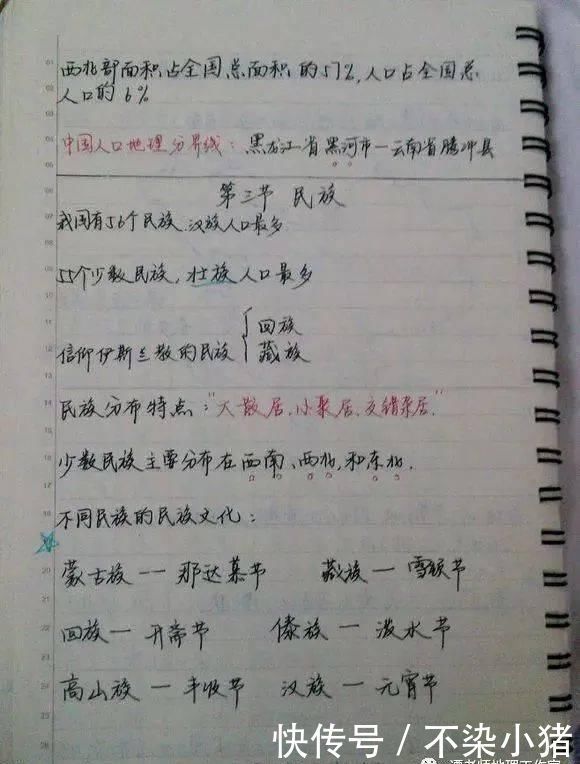 西北部面积占全国总面积的57%,人口占全国总
人口的6%
中国人口地理分界线:黑龙江省黑河市一云南省腾冲县
第三节 民族
我国有56个民族,汉族人口最多
55个少数民族,壮族人口最多
信仰伊斯兰教的民族{回族
藏族
民族分布特点:"大散居、小聚居、交错杂居."
少数民族主要分布在西南、西北,和东北.
不同民族的民族文化:
蒙古族一那达慕节 藏族一雪顿节
回族一开斋节 傣族一泼水节
高山族一丰收节 汉族一元宵节
快传号/不染小猪
谭老师地理工作室